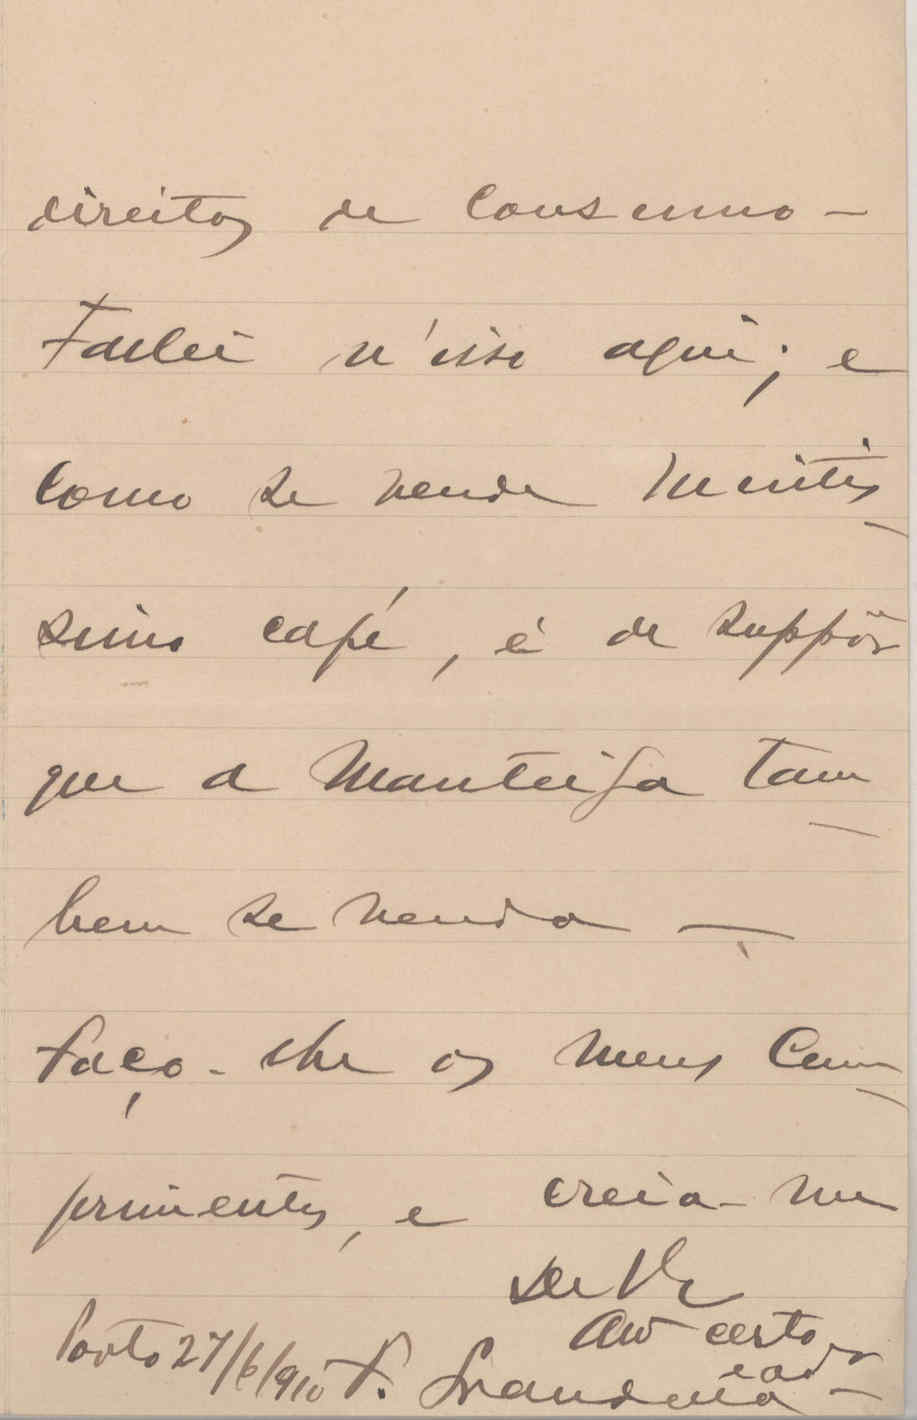 direitos de consumo –
Fallei n'isso aqui; e
como se vende muitis-
simo café, é de suppôr
que a manteiga tam-
bem se venda —
Faço-lhe os meus cum-
primentos, e creia-me
De V.
certo
Porto 27/6/910 F.